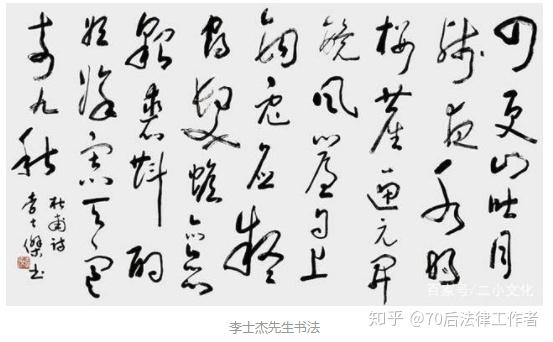 四更山吐月
殘夜水明
樓塵匣元開
鏡風簾自上
鉤兔應疑
鶴髮蟾亦戀
貂裘斟酌
姮娥寡天寒
耐九秋
杜甫詩
李士傑书
百家号/二小文化
李士杰先生书法
知乎 @70后法律工作者